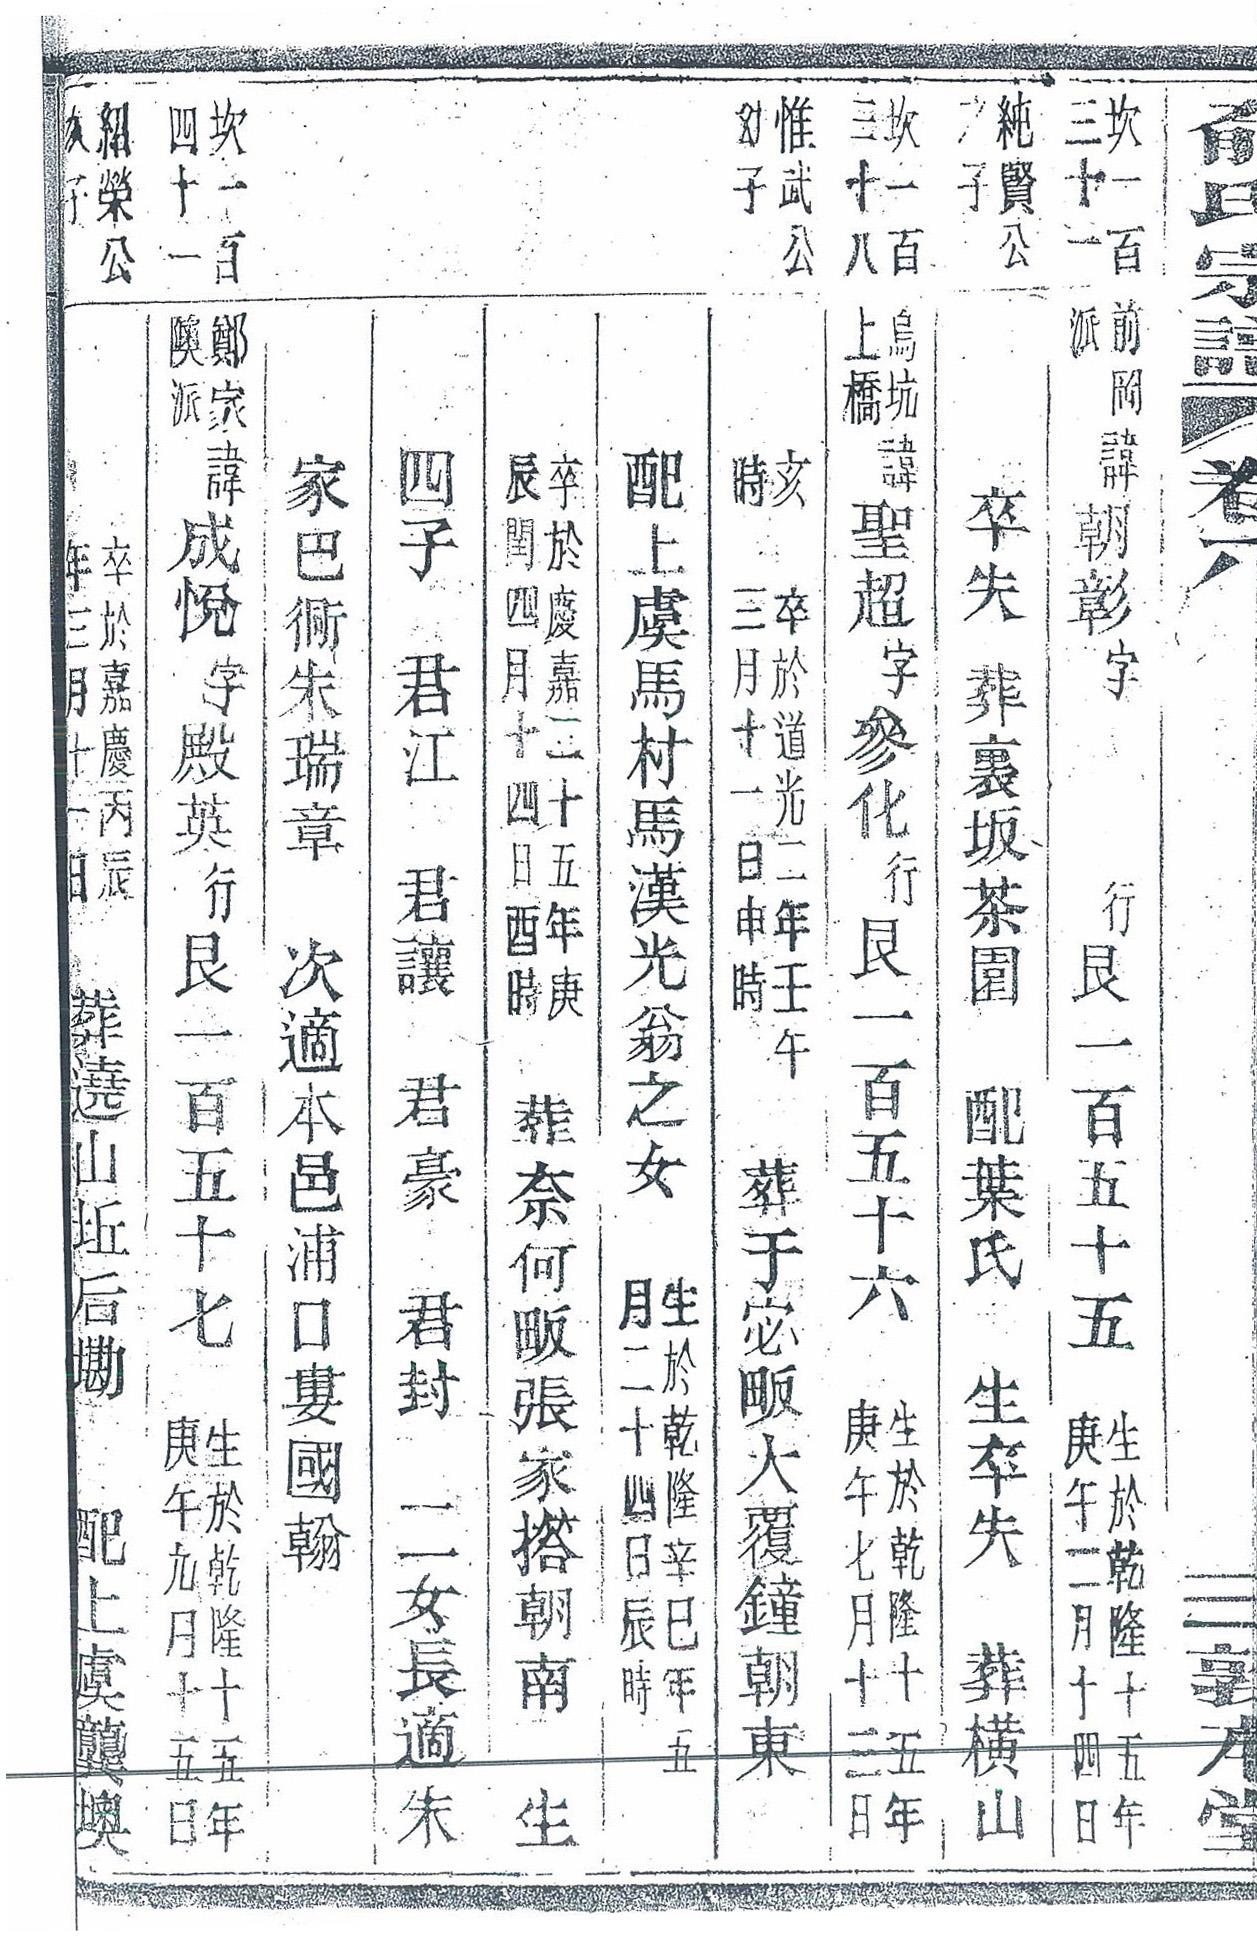 俞氏宗譜 卷六 三 敦本堂
坎一百三十一 前岡派 諱朝彰 字 行艮一百五十五 生於乾隆十五年庚午二月十四日
純賢公之子 卒失 葬裏坂茶園 配葉氏 生卒失 葬橫山
坎一百三十八 烏坑上橋 諱聖超 字參化 行艮一百五十六 生於乾隆十五年庚午七月十三日
惟武公幼子 亥時 卒於道光二年壬午三月十一日申時 葬于宓畈大覆鐘朝東
配上虞馬村馬漢光翁之女 生於乾隆辛巳年五月二十四日辰時
卒於慶嘉二十五年庚辰閏四月十四日酉時 葬奈何畈張家搭朝南 生
四子 君江 君讓 君豪 君封 二女長適朱
家巴衕朱瑞章 次適本邑浦口婁國翰
坎一百四十一 鄭家隩派 諱成悅 字殿英 行艮一百五十七 生於乾隆十五年庚午九月十五日
紹榮公次子 卒於嘉慶丙辰年三月廿一日 葬遶山坵后墈 配上虞龔墺